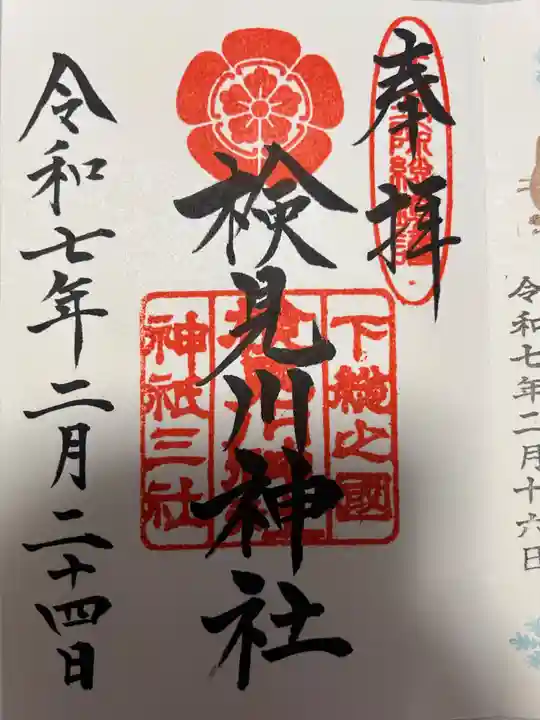 令和七年二月十六日
奉拝
下総之國
検見川神社
神祇三社
令和七年二月二十四日